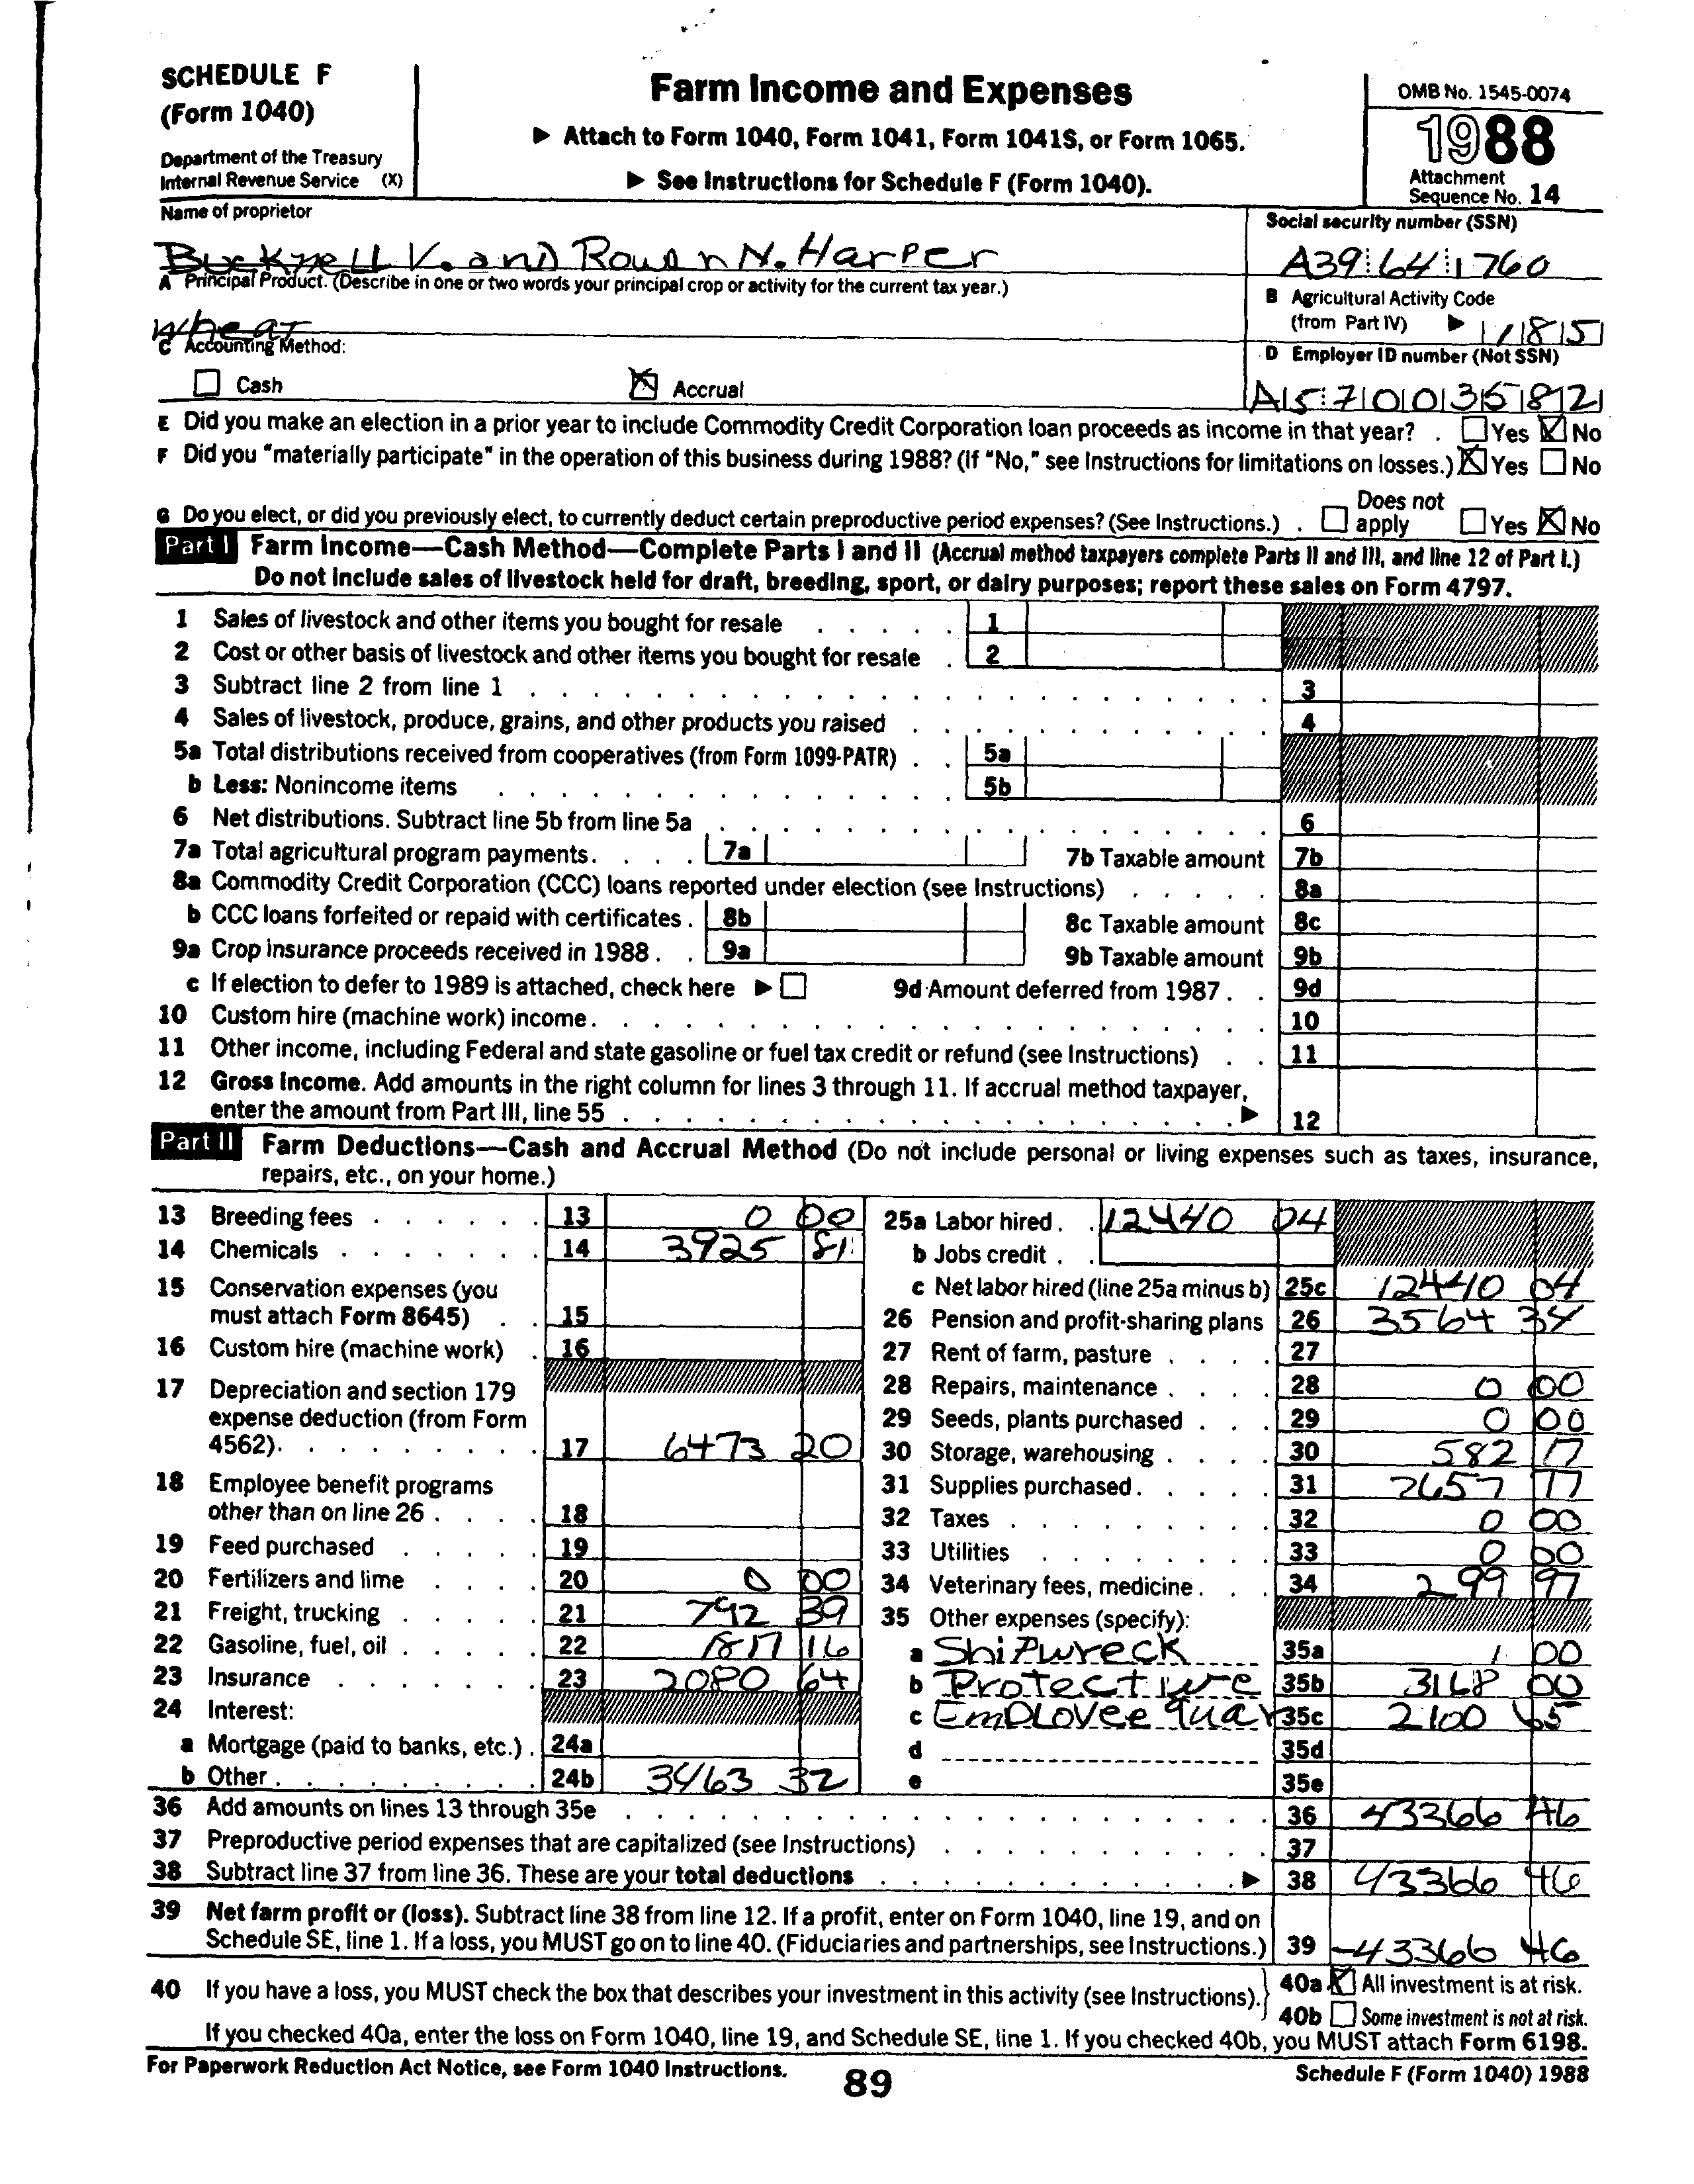 SCHEDULE F
(Form 1040)
Department of the Treasury
Internal Revenue Service (X)
Farm Income and Expenses
▶ Attach to Form 1040, Form 1041, Form 1041S, or Form 1065.
▶ See Instructions for Schedule F (Form 1040).
OMB No. 1545-0074
1988
Attachment
Sequence No. 14
Name of proprietor
Bucknell V. and Rowan N. Harper
Social security number (SSN)
A39 64 1760
A Principal Product. (Describe in one or two words your principal crop or activity for the current tax year.)
Wheat
B Agricultural Activity Code
(from Part IV) ▶ 1 1 8 5
C Accounting Method:
Cash Accrual
D Employer ID number (Not SSN)
A 5 7 0 0 3 5 8 2
E Did you make an election in a prior year to include Commodity Credit Corporation loan proceeds as income in that year? . Yes No
F Did you "materially participate" in the operation of this business during 1988? (If "No," see Instructions for limitations on losses.) Yes No
G Do you elect, or did you previously elect, to currently deduct certain preproductive period expenses? (See Instructions.) . Does not apply Yes No
Part I Farm Income—Cash Method—Complete Parts I and II (Accrual method taxpayers complete Parts II and III, and line 12 of Part I.)
Do not include sales of livestock held for draft, breeding, sport, or dairy purposes; report these sales on Form 4797.
1 Sales of livestock and other items you bought for resale 1
2 Cost or other basis of livestock and other items you bought for resale 2
3 Subtract line 2 from line 1 3
4 Sales of livestock, produce, grains, and other products you raised 4
5a Total distributions received from cooperatives (from Form 1099-PATR) 5a
b Less: Nonincome items 5b
6 Net distributions. Subtract line 5b from line 5a 6
7a Total agricultural program payments. 7a 7b Taxable amount 7b
8a Commodity Credit Corporation (CCC) loans reported under election (see Instructions) 8a
b CCC loans forfeited or repaid with certificates . 8b 8c Taxable amount 8c
9a Crop insurance proceeds received in 1988 . 9a 9b Taxable amount 9b
c If election to defer to 1989 is attached, check here ▶ 9d Amount deferred from 1987 . 9d
10 Custom hire (machine work) income. 10
11 Other income, including Federal and state gasoline or fuel tax credit or refund (see Instructions) 11
12 Gross Income. Add amounts in the right column for lines 3 through 11. If accrual method taxpayer,
enter the amount from Part III, line 55 ▶ 12
Part II Farm Deductions—Cash and Accrual Method (Do not include personal or living expenses such as taxes, insurance,
repairs, etc., on your home.)
13 Breeding fees 13 0 00
14 Chemicals 14 3925 81
15 Conservation expenses (you
must attach Form 8645) 15
16 Custom hire (machine work) 16
17 Depreciation and section 179
expense deduction (from Form
4562). 17 6473 20
18 Employee benefit programs
other than on line 26 18
19 Feed purchased 19
20 Fertilizers and lime 20 0 00
21 Freight, trucking 21 792 39
22 Gasoline, fuel, oil 22 1817 16
23 Insurance 23 2080 64
24 Interest:
a Mortgage (paid to banks, etc.) . 24a
b Other 24b 3463 32
25a Labor hired 12440 04
b Jobs credit
c Net labor hired (line 25a minus b) 25c 12440 04
26 Pension and profit-sharing plans 26 3564 34
27 Rent of farm, pasture 27
28 Repairs, maintenance 28 0 00
29 Seeds, plants purchased 29 0 00
30 Storage, warehousing 30 582 17
31 Supplies purchased 31 2657 77
32 Taxes 32 0 00
33 Utilities 33 0 00
34 Veterinary fees, medicine 34 299 97
35 Other expenses (specify):
a Shipwreck 35a 1 00
b Protective 35b 3168 00
c Employee quar 35c 2100 65
d 35d
e 35e
36 Add amounts on lines 13 through 35e 36 43366 46
37 Preproductive period expenses that are capitalized (see Instructions) 37
38 Subtract line 37 from line 36. These are your total deductions ▶ 38 43366 46
39 Net farm profit or (loss). Subtract line 38 from line 12. If a profit, enter on Form 1040, line 19, and on
Schedule SE, line 1. If a loss, you MUST go on to line 40. (Fiduciaries and partnerships, see Instructions.) 39 -43366 46
40 If you have a loss, you MUST check the box that describes your investment in this activity (see Instructions). 40a All investment is at risk.
40b Some investment is not at risk.
If you checked 40a, enter the loss on Form 1040, line 19, and Schedule SE, line 1. If you checked 40b, you MUST attach Form 6198.
For Paperwork Reduction Act Notice, see Form 1040 Instructions.
89
Schedule F (Form 1040) 1988